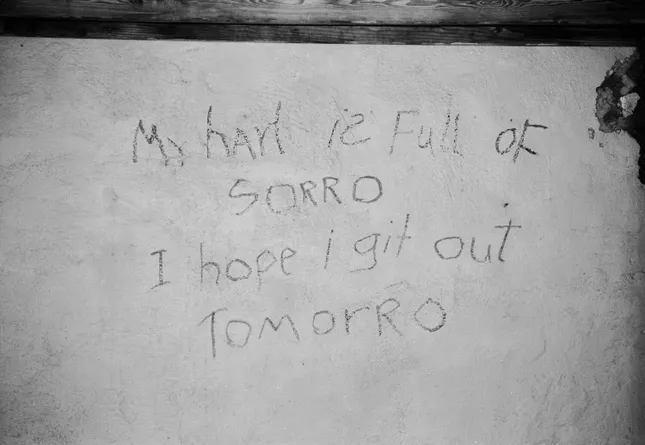 My hart is Full of
SORRO
I hope i git out
TomorRO